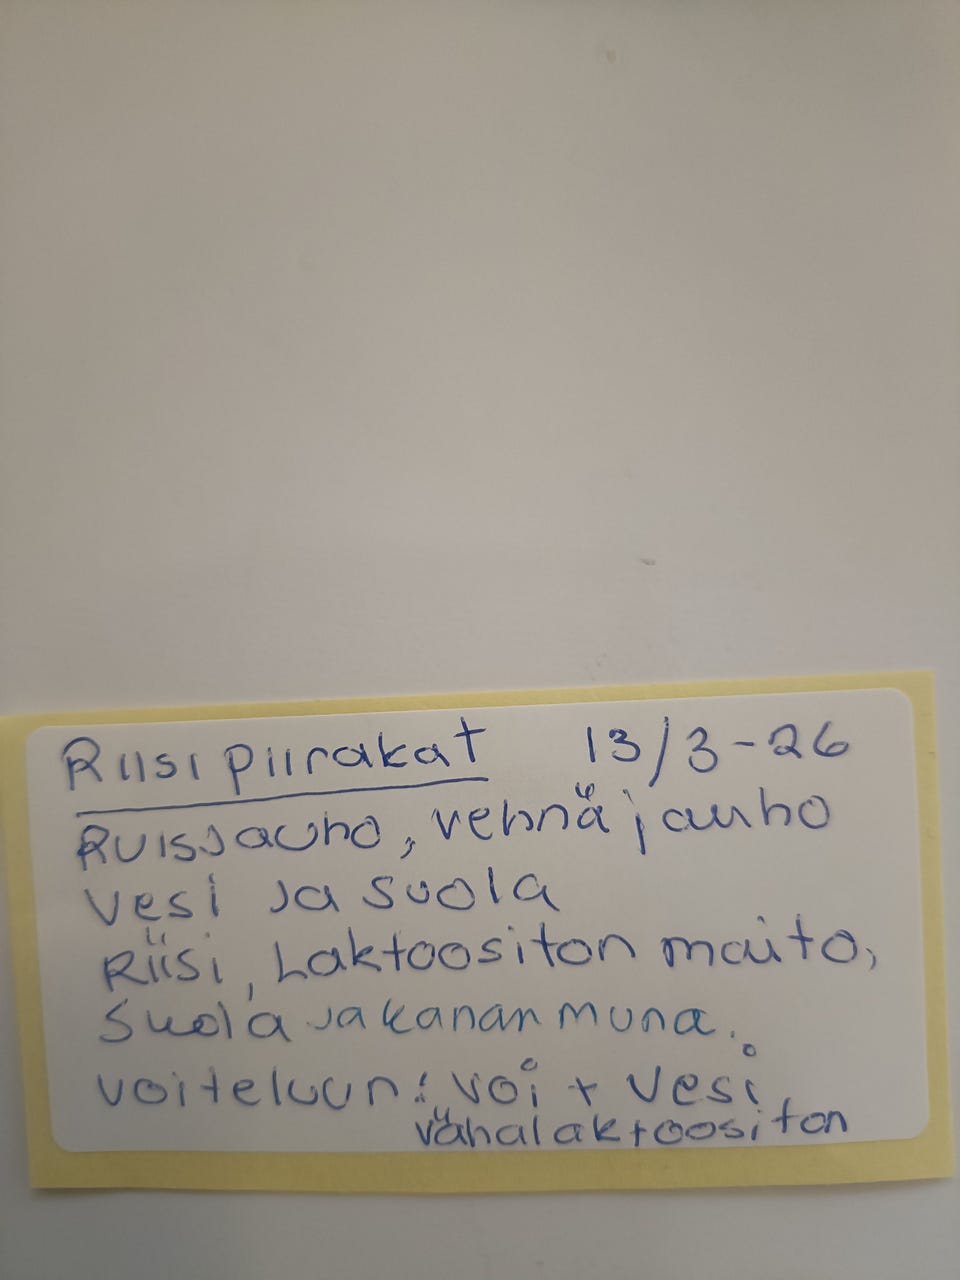 Riisipiirakat 13/3-26
Ruisjauho, vehnäjauho
Vesi ja suola
Riisi, Laktoositon maito,
Suola ja kananmuna.
voiteluun: voi + vesi
vähälaktoositon